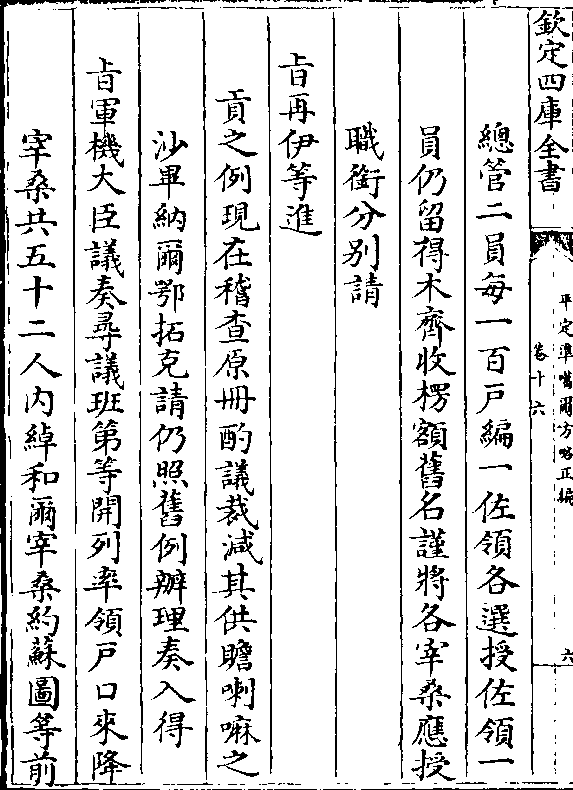 欽定四庫全書
平定準噶爾方略正編
卷十六
六
總管二員每一百戶編一佐領各選授佐領一
員仍留得木齊收楞額舊名謹將各宰桑應授
職銜分别請
㫖再伊等進
貢之例現在稽查原冊酌議裁減其供贍喇嘛之
沙畢納爾鄂拓克請仍照舊例辦理奏入得
㫖軍機大臣議奏尋議班第等開列率領戶口來降
宰桑共五十二人内綽和爾宰桑約蘇圖等前